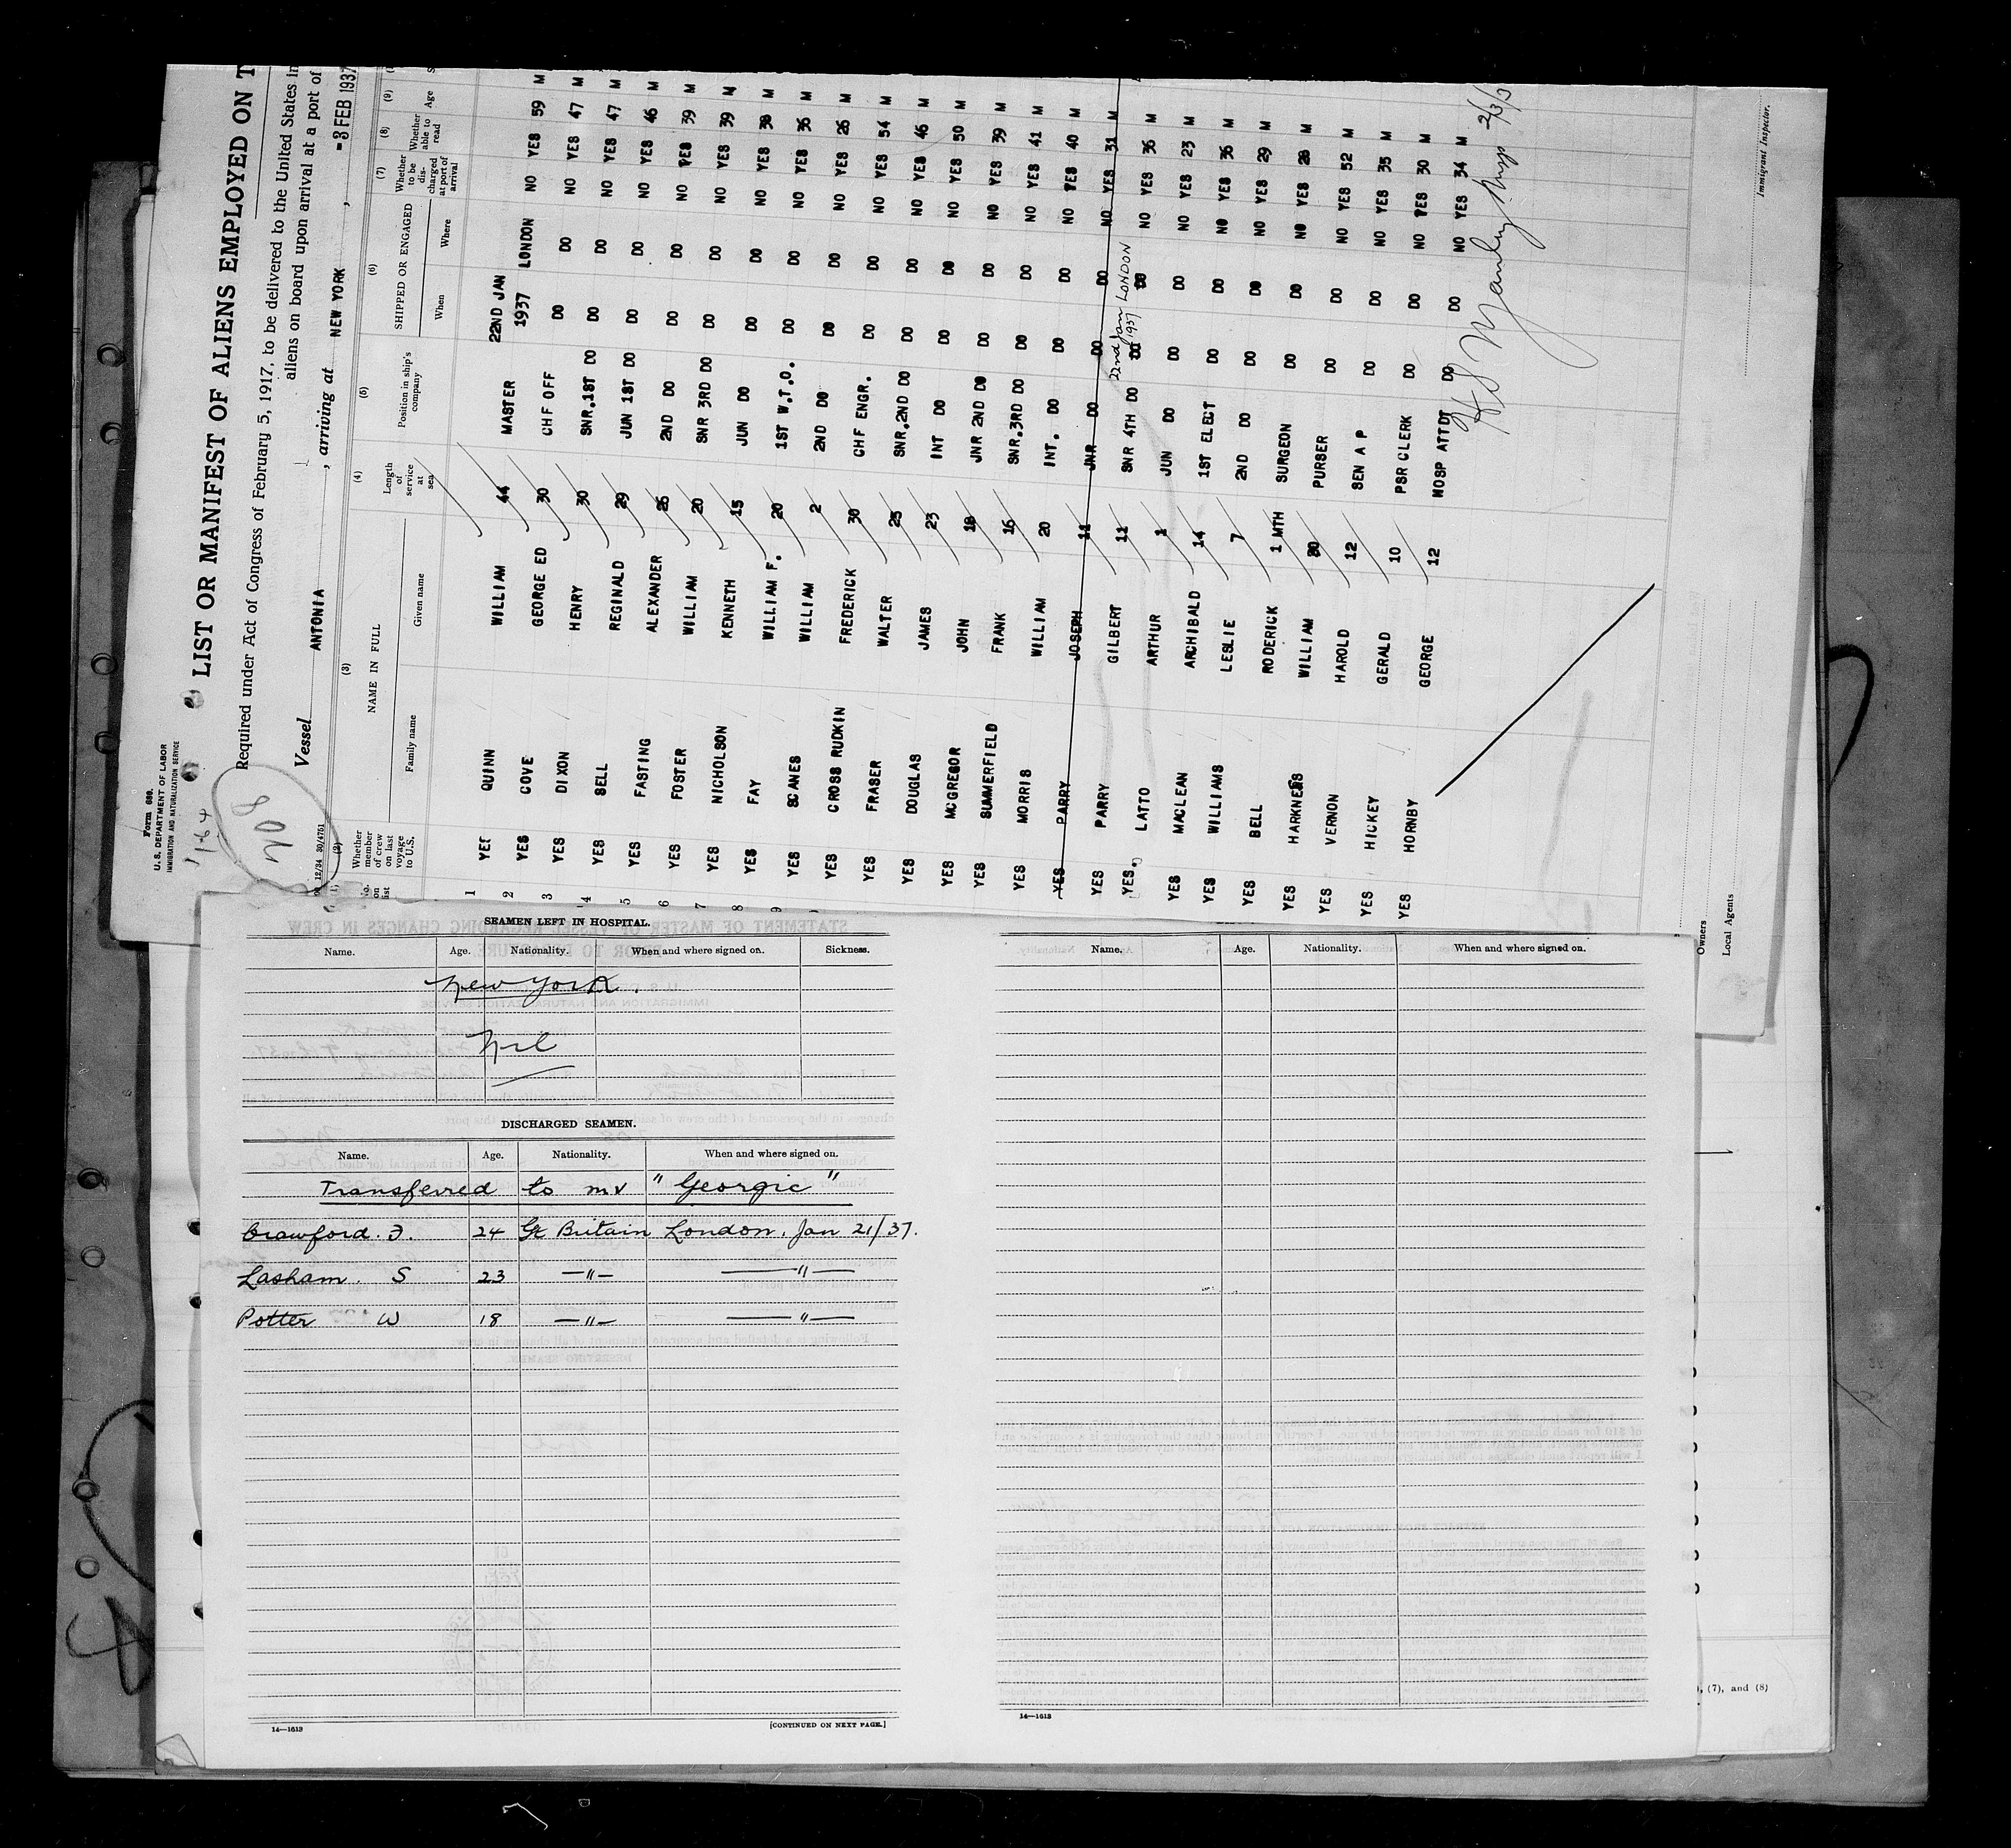 Form 680.
U. S. DEPARTMENT OF LABOR
IMMIGRATION AND NATURALIZATION SERVICE
208
12/34 30/4751
LIST OR MANIFEST OF ALIENS EMPLOYED ON T
Required under Act of Congress of February 5, 1917, to be delivered to the United States in
aliens on board upon arrival at a port of
Vessel ANTONIA, arriving at NEW YORK, -3 FEB 1937
(1) (2) (3) (4) (5) (6) (7) (8) (9)
No. on list
Whether member of crew on last voyage to U.S.
NAME IN FULL
Family name Given name
Length of service at sea
Position in ship's company
SHIPPED OR ENGAGED
When Where
Whether to be discharged at port of arrival
Whether able to read
Age
1 YES QUINN WILLIAM 44 MASTER 22ND JAN 1937 LONDON NO YES 59 M
2 YES COVE GEORGE ED 30 CHF OFF DO DO NO YES 47 M
3 YES DIXON HENRY 30 SNR.1ST DO DO DO NO YES 47 M
4 YES SELL REGINALD 29 JUN 1ST DO DO DO NO YES 46 M
5 YES FASTING ALEXANDER 26 2ND DO DO DO NO YES 39 M
6 YES FOSTER WILLIAM 20 SNR 3RD DO DO DO NO YES 39 M
7 YES NICHOLSON KENNETH 15 JUN DO DO DO NO YES 38 M
8 YES FAY WILLIAM F. 20 1ST W.T.O. DO DO NO YES 36 M
9 YES SCANES WILLIAM 2 2ND DO DO DO NO YES 26 M
YES CROSS RUDKIN FREDERICK 30 CHF ENGR. DO DO NO YES 54 M
YES FRASER WALTER 25 SNR.2ND DO DO DO NO YES 46 M
YES DOUGLAS JAMES 23 INT DO DO DO NO YES 50 M
YES MCGREGOR JOHN 18 JNR 2ND DO DO DO NO YES 39 M
YES SUMMERFIELD FRANK 16 SNR.3RD DO DO DO NO YES 41 M
YES MORRIS WILLIAM 20 INT. DO DO DO NO YES 40 M
YES PARRY JOSEPH 11 JNR DO DO DO NO YES 31 M
YES PARRY GILBERT 11 SNR 4TH DO DO 22nd Jan 1937 DO LONDON NO YES 36 M
YES. LATTO ARTHUR 1 JUN DO DO DO NO YES 23 M
YES MACLEAN ARCHIBALD 14 1ST ELECT DO DO NO YES 36 M
YES WILLIAMS LESLIE 7 2ND DO DO DO NO YES 29 M
YES BELL RODERICK 1 MTH SURGEON DO DO NO YES 28 M
YES HARKNESS WILLIAM 30 PURSER DO DO NO YES 52 M
YES VERNON HAROLD 12 SEN A P DO DO NO YES 35 M
YES HICKEY GERALD 10 PSR CLERK DO DO NO YES 30 M
YES HORNBY GEORGE 12 HOSP ATTDT DO DO NO YES 34 M
Immigrant Inspector.
Owners
Local Agents
SEAMEN LEFT IN HOSPITAL.
Name. Age. Nationality. When and where signed on. Sickness.
New York.
Nil
DISCHARGED SEAMEN.
Name. Age. Nationality. When and where signed on.
Transferred to mv "Georgic"
Crawford. J. 24 Gt Britain London. Jan 21/37.
Lasham. S 23 —"— —"—
Potter W 18 —"— —"—
14—1613
[CONTINUED ON NEXT PAGE.]
Name. Age. Nationality. When and where signed on.
14—1613
), (7), and (8)